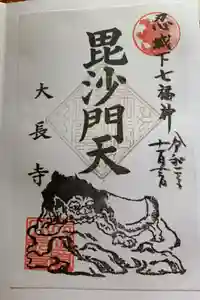 忍城下七福神
令和二年
十一月
毘沙門天
大長寺